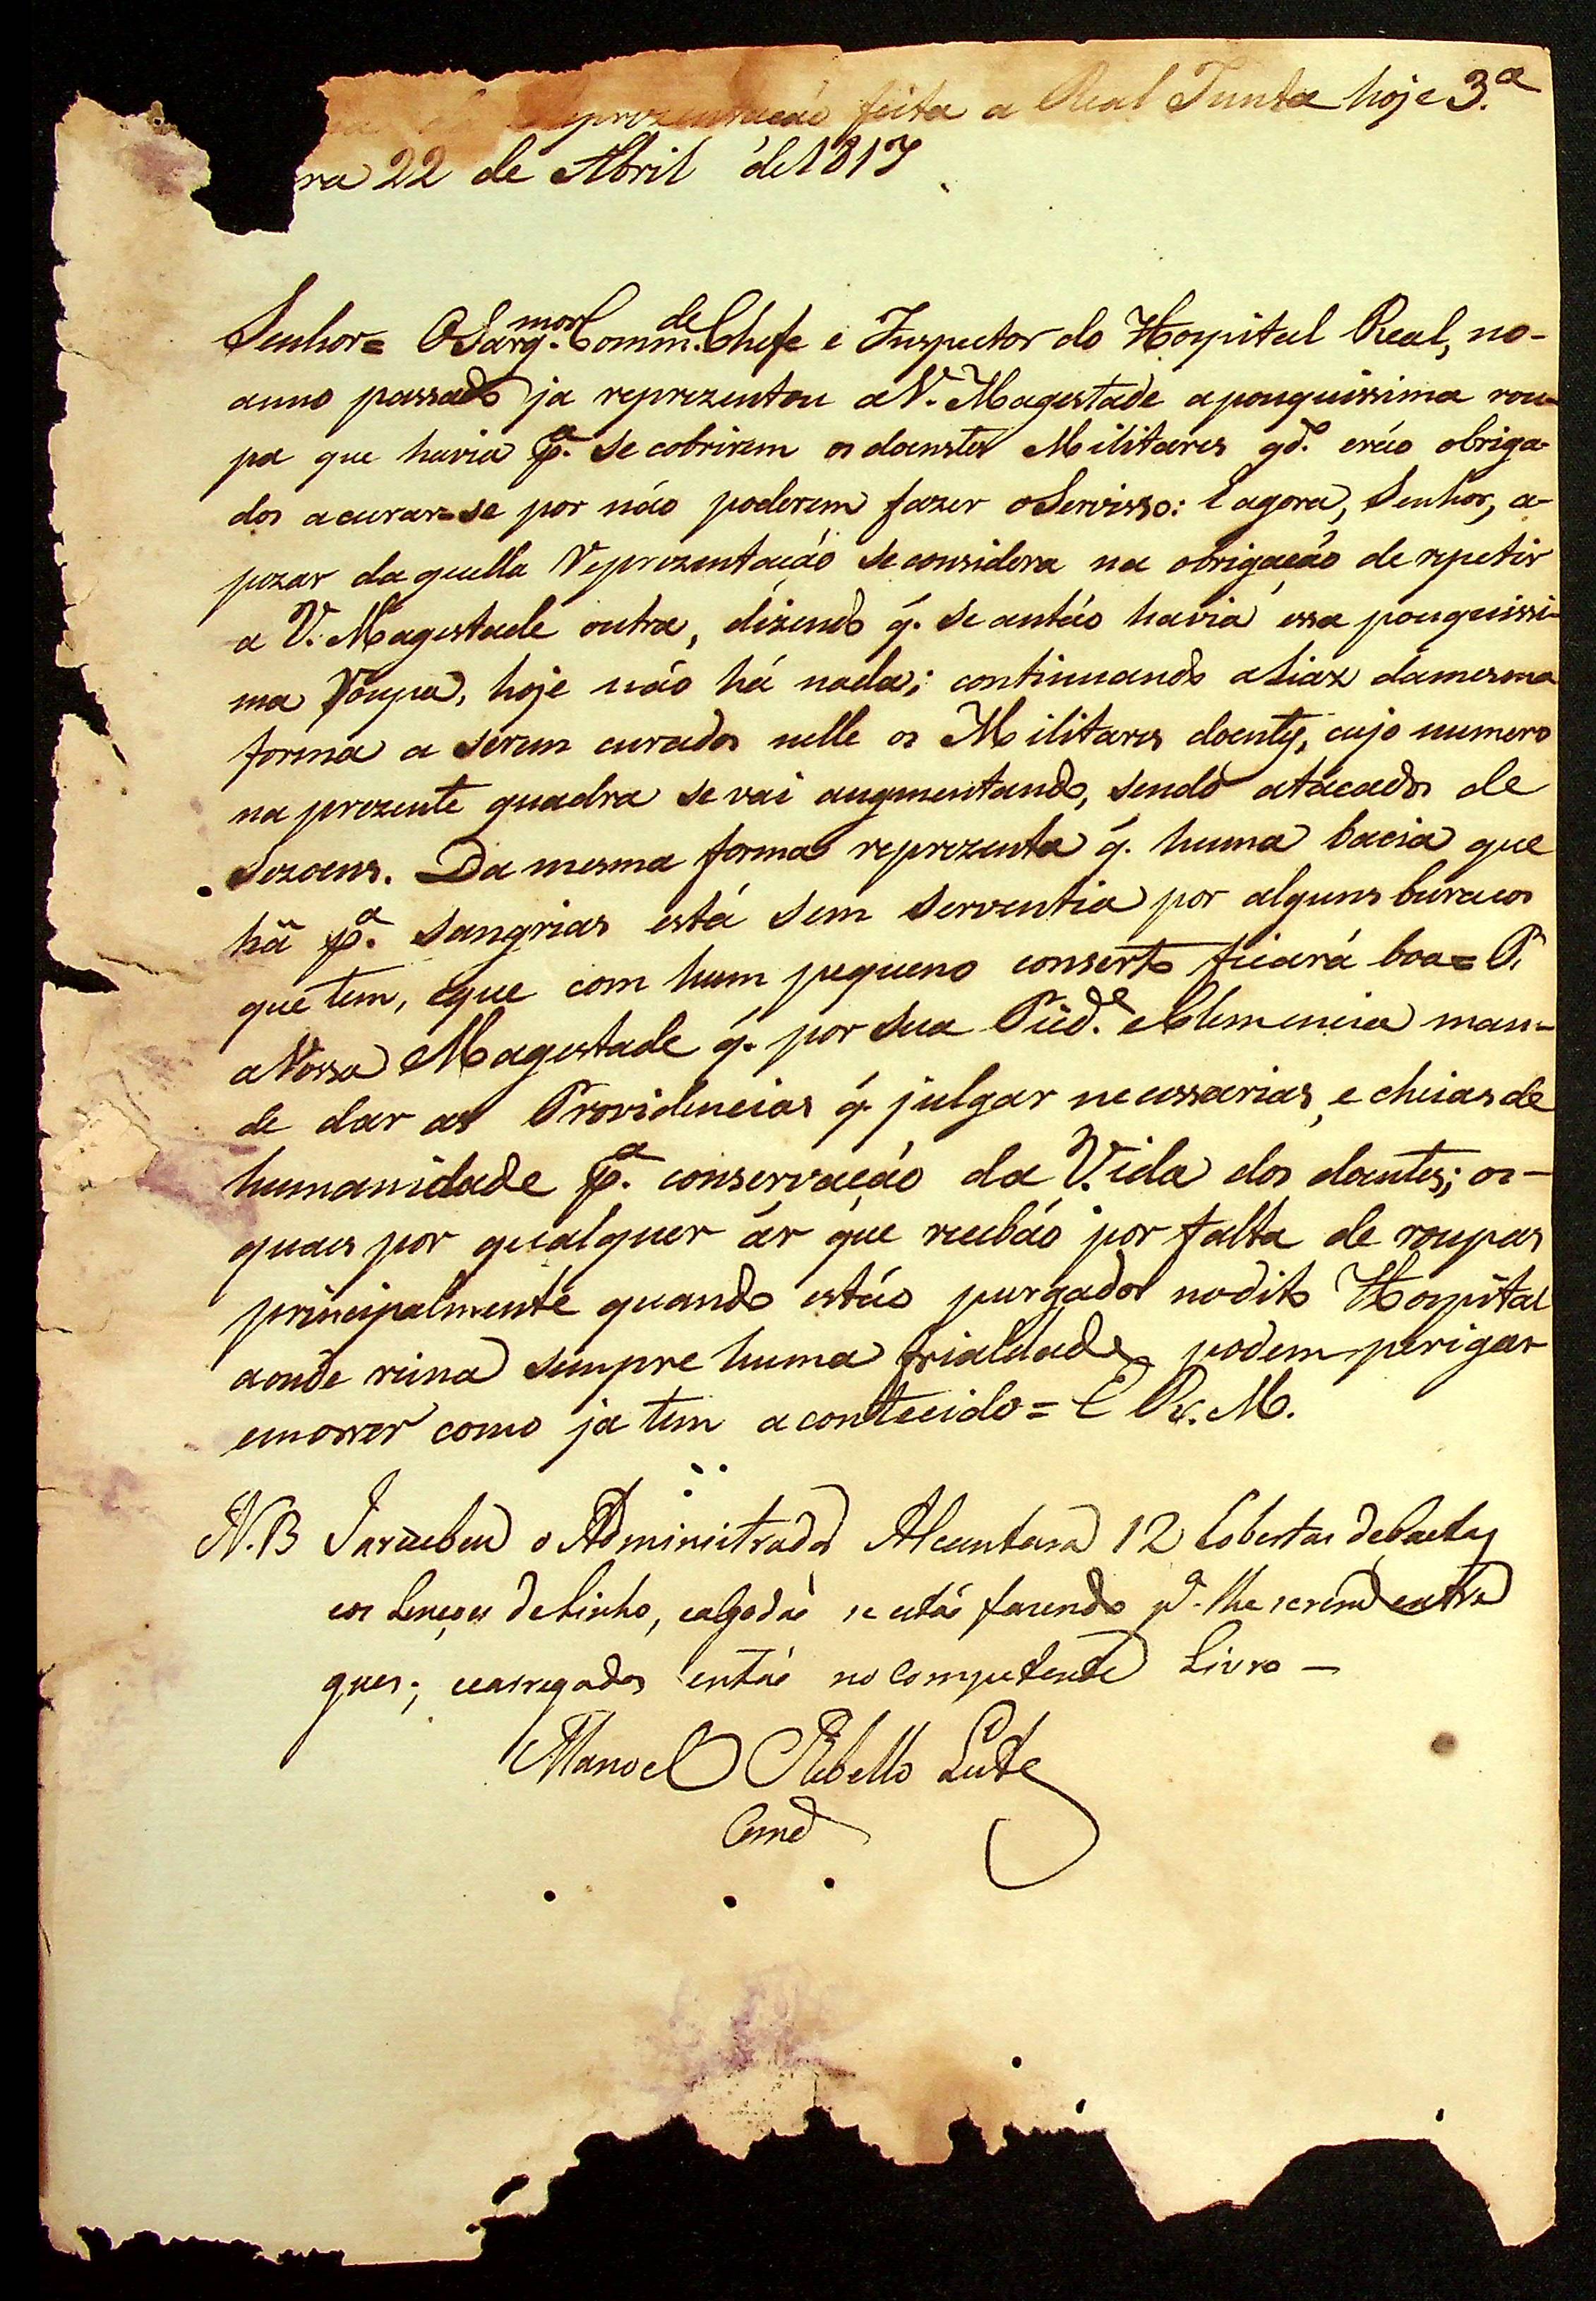 feita a Real Junta hoje 3.ª
ra 22 de Abril de 1817
Senhor = O Sarg.mor Comm.de Chefe e Inspector do Hospital Real, no-
anno passado ja reprezentou a V. Magestade a pouquissima rou-
pa que havia p.ª se cobrirem os doentes Militares qd.º erão obriga-
dos a curar-se por não poderem fazer o Servisso: E agora, Senhor, a-
pezar daquella Reprezentação se considera na obrigação de repetir
a V. Magestade outra, dizendo q. se antão havia essa pouquissi-
ma Roupa, hoje não há nada; continuando aliaz da mesma
forma a serem curados nelle os Militares doentes, cujo numero
na prezente quadra se vai augmentando, sendo atacados de
Sezoens. Da mesma forma reprezenta q. huma bacia que
há p.ª Sangrias está sem serventia por alguns buracos
que tem, e que com hum pequeno conserto ficará boa = P.
a Vossa Magestade q. por sua Pied.e e Clemencia man-
de dar as Providencias q. julgar necessarias, e cheias de
humanidade p.ª conservação da Vida dos doentes; os-
quaes por qualquer ár que recebão por falta de roupas
principalmente quando estão purgados no dito Hospital
aonde reina sempre huma frialdade, podem perigar
e morrer como ja tem acontecido = E R. M.
N.B Ja recebeu o Administrador Alcantara 12 Cobertas de baetas
e os Lençoes de Linho, e algodão se estão fazendo p.ª lhe serem entre
gues; e carregados então no competente Livro —
Manoel Rebello Leite
Comd